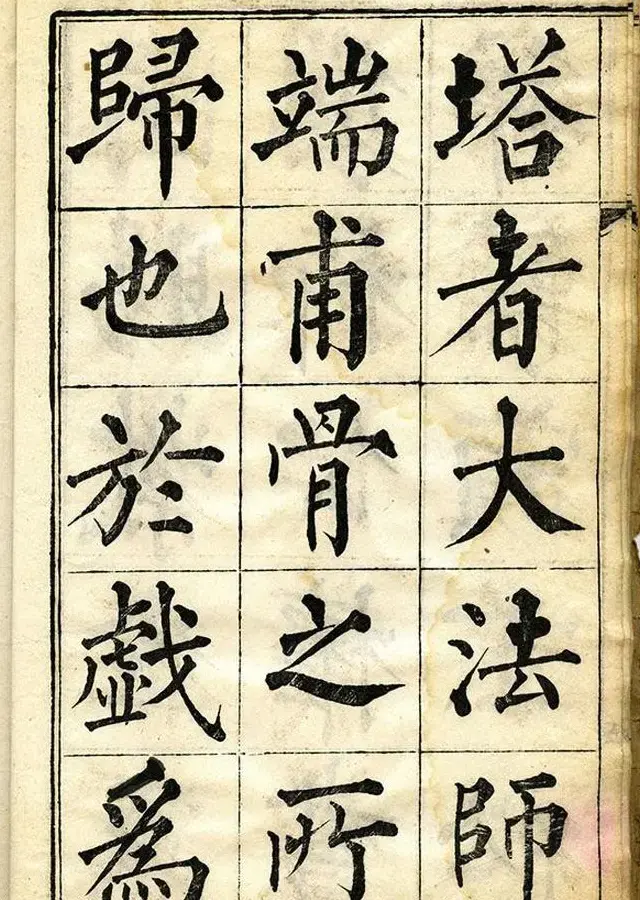 塔者大法師
端甫骨之所
歸也於戯為